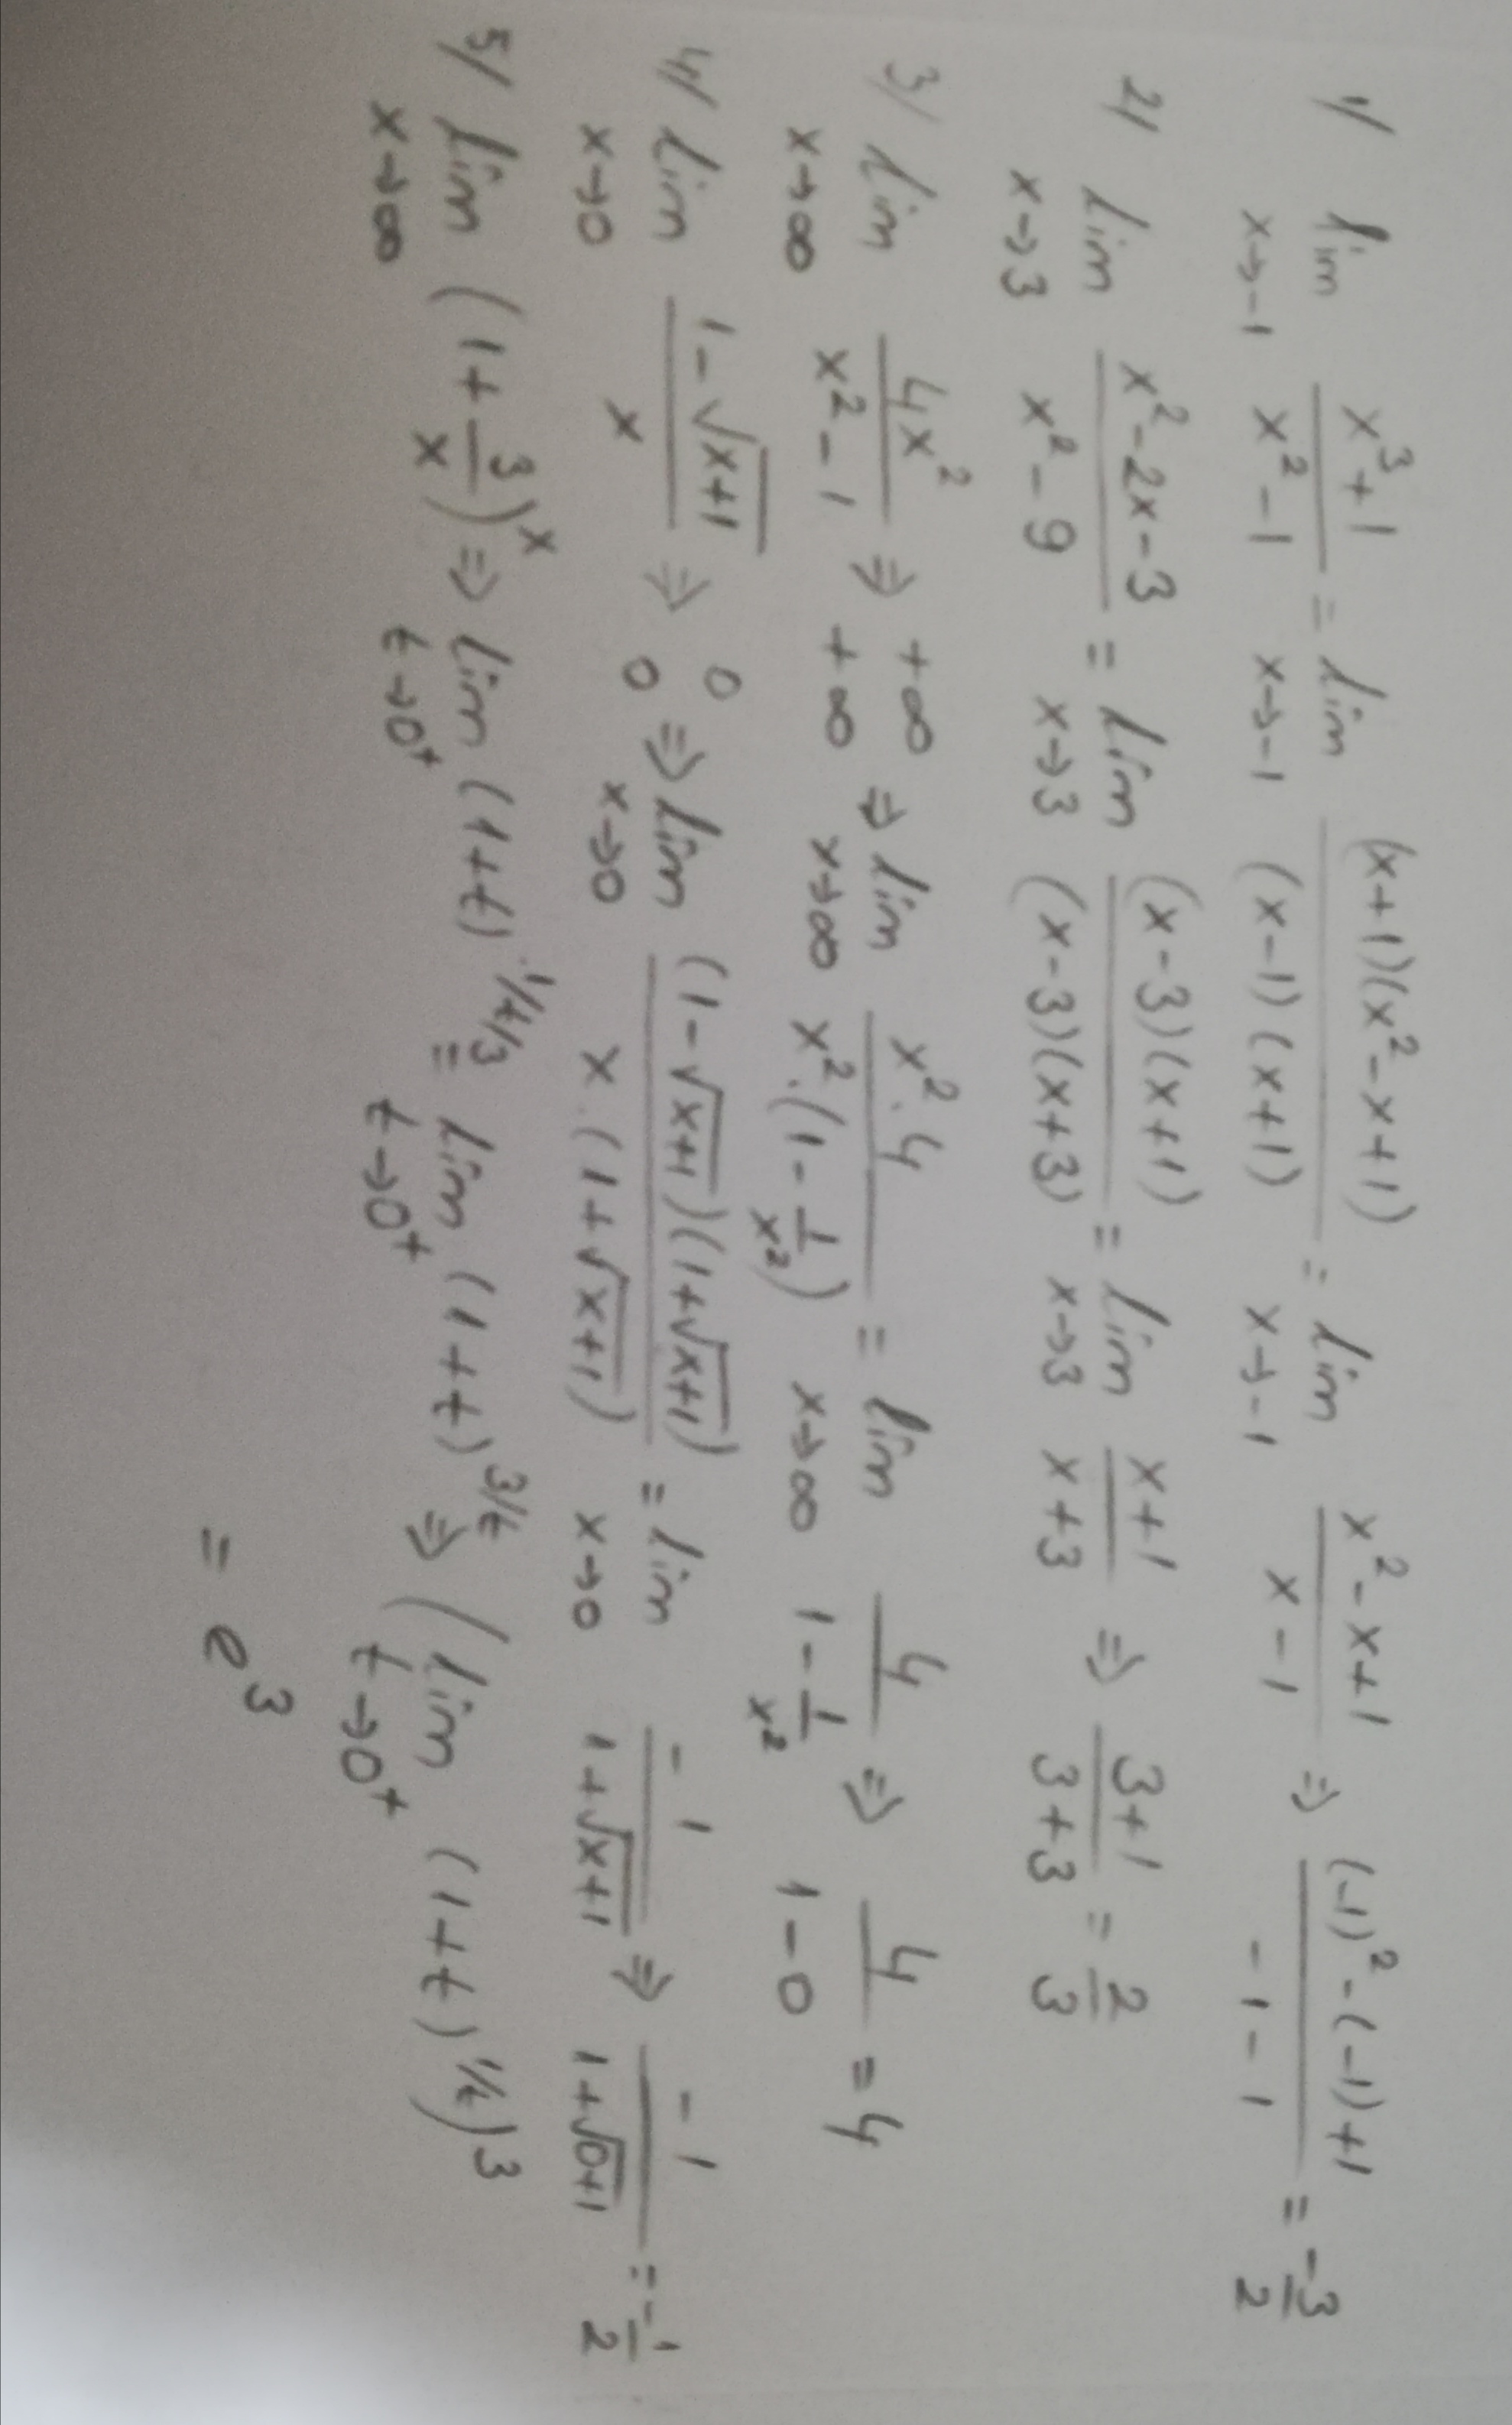 1/ lim x→-1 (x³+1)/(x²-1) = lim x→-1 ((x+1)(x²-x+1))/((x-1)(x+1)) = lim x→-1 (x²-x+1)/(x-1) ⇒ ((-1)²-(-1)+1)/(-1-1) = -3/2
2/ lim x→3 (x²-2x-3)/(x²-9) = lim x→3 ((x-3)(x+1))/((x-3)(x+3)) = lim x→3 (x+1)/(x+3) ⇒ (3+1)/(3+3) = 2/3
3/ lim x→∞ 4x²/(x²-1) ⇒ +∞/+∞ ⇒ lim x→∞ (x².4)/(x².(1-1/x²)) = lim x→∞ 4/(1-1/x²) ⇒ 4/(1-0) = 4
4/ lim x→0 (1-√(x+1))/x ⇒ 0/0 ⇒ lim x→0 ((1-√(x+1))(1+√(x+1)))/(x.(1+√(x+1))) = lim x→0 -1/(1+√(x+1)) ⇒ -1/(1+√(0+1)) = -1/2
5/ lim x→∞ (1+3/x)^x ⇒ lim t→0⁺ (1+t)^(1/t/3) = lim t→0⁺ (1+t)^(3/t) ⇒ (lim t→0⁺ (1+t)^(1/t))³
= e³